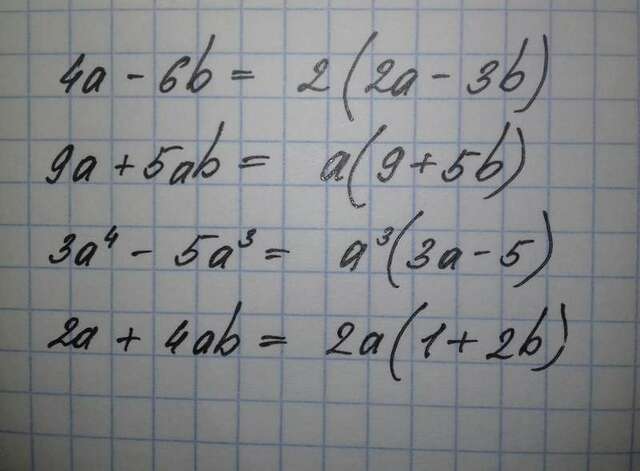 4a - 6b = 2(2a - 3b)
9a + 5ab = a(9 + 5b)
3a⁴ - 5a³ = a³(3a - 5)
2a + 4ab = 2a(1 + 2b)